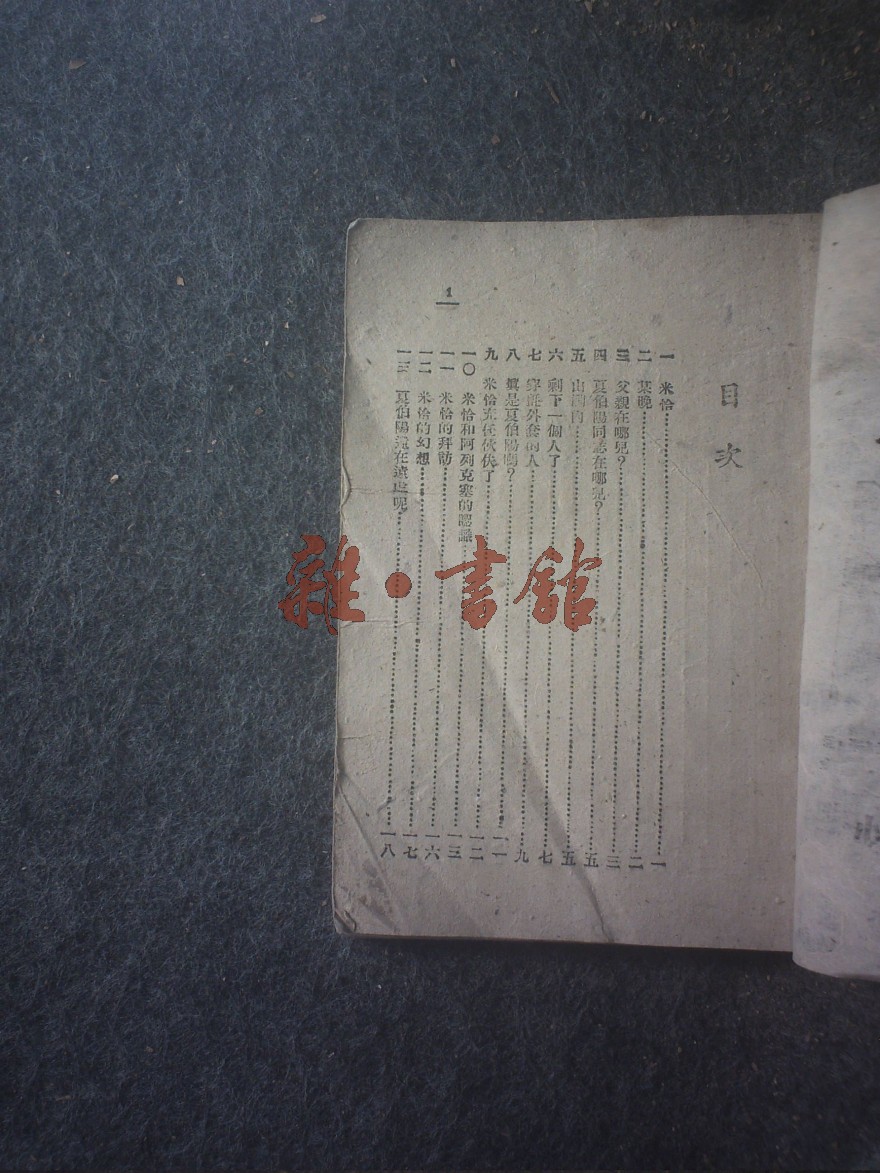 目次
一 米恰……一
二 某晚……二
三 父親在哪兒?……三
四 夏伯陽同志在哪兒?……五
五 山洞內……五
六 剩下一個人了……七
七 穿氈外套的人……九
八 眞是夏伯陽嗎?……一一
九 米恰充任伙伕了……一二
一〇 米恰和阿列克塞的認識……一三
一一 米恰的拜訪……一六
一二 米恰的幻想……一七
一三 夏伯陽還在遠處呢……一八
1
雜·書館